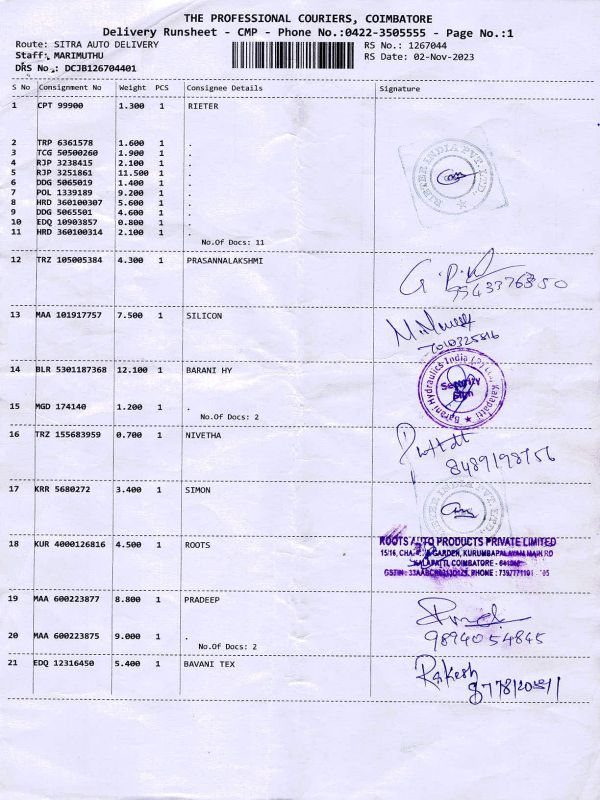 THE PROFESSIONAL COURIERS, COIMBATORE
Delivery Runsheet - CMP - Phone No.:0422-3505555 - Page No.:1
Route: SITRA AUTO DELIVERY RS No.: 1267044
Staff: MARIMUTHU RS Date: 02-Nov-2023
DRS No.: DCJB126704401
S No Consignment No Weight PCS Consignee Details Signature
1 CPT 99900 1.300 1 RIETER
2 TRP 6361578 1.600 1 .
3 TCG 50500260 1.900 1 .
4 RJP 3238415 2.100 1 .
5 RJP 3251861 11.500 1 .
6 DDG 5065019 1.400 1 .
7 POL 1339189 9.200 1 .
8 HRD 360100307 5.600 1 .
9 DDG 5065501 4.600 1 .
10 EDQ 10903857 0.800 1 .
11 HRD 360100314 2.100 1 .
No.Of Docs: 11
RIETER INDIA PVT. LTD.
12 TRZ 105005384 4.300 1 PRASANNALAKSHMI
13 MAA 101917757 7.500 1 SILICON
7010325816
14 BLR 5301187368 12.100 1 BARANI HY
Barani Hydraulics India Kalapatti
Security Sign
15 MGD 174140 1.200 1 .
No.Of Docs: 2
16 TRZ 155683959 0.700 1 NIVETHA
8489198756
17 KRR 5680272 3.400 1 SIMON
18 KUR 4000126816 4.500 1 ROOTS
ROOTS AUTO PRODUCTS PRIVATE LIMITED
15/16, GARDEN, KURUMBAPALAYAM MAIN RD
KALAPATTI, COIMBATORE -
GSTIN : PHONE :
19 MAA 600223877 8.800 1 PRADEEP
9894054845
20 MAA 600223875 9.000 1 .
No.Of Docs: 2
21 EDQ 12316450 5.400 1 BAVANI TEX
Rakesh